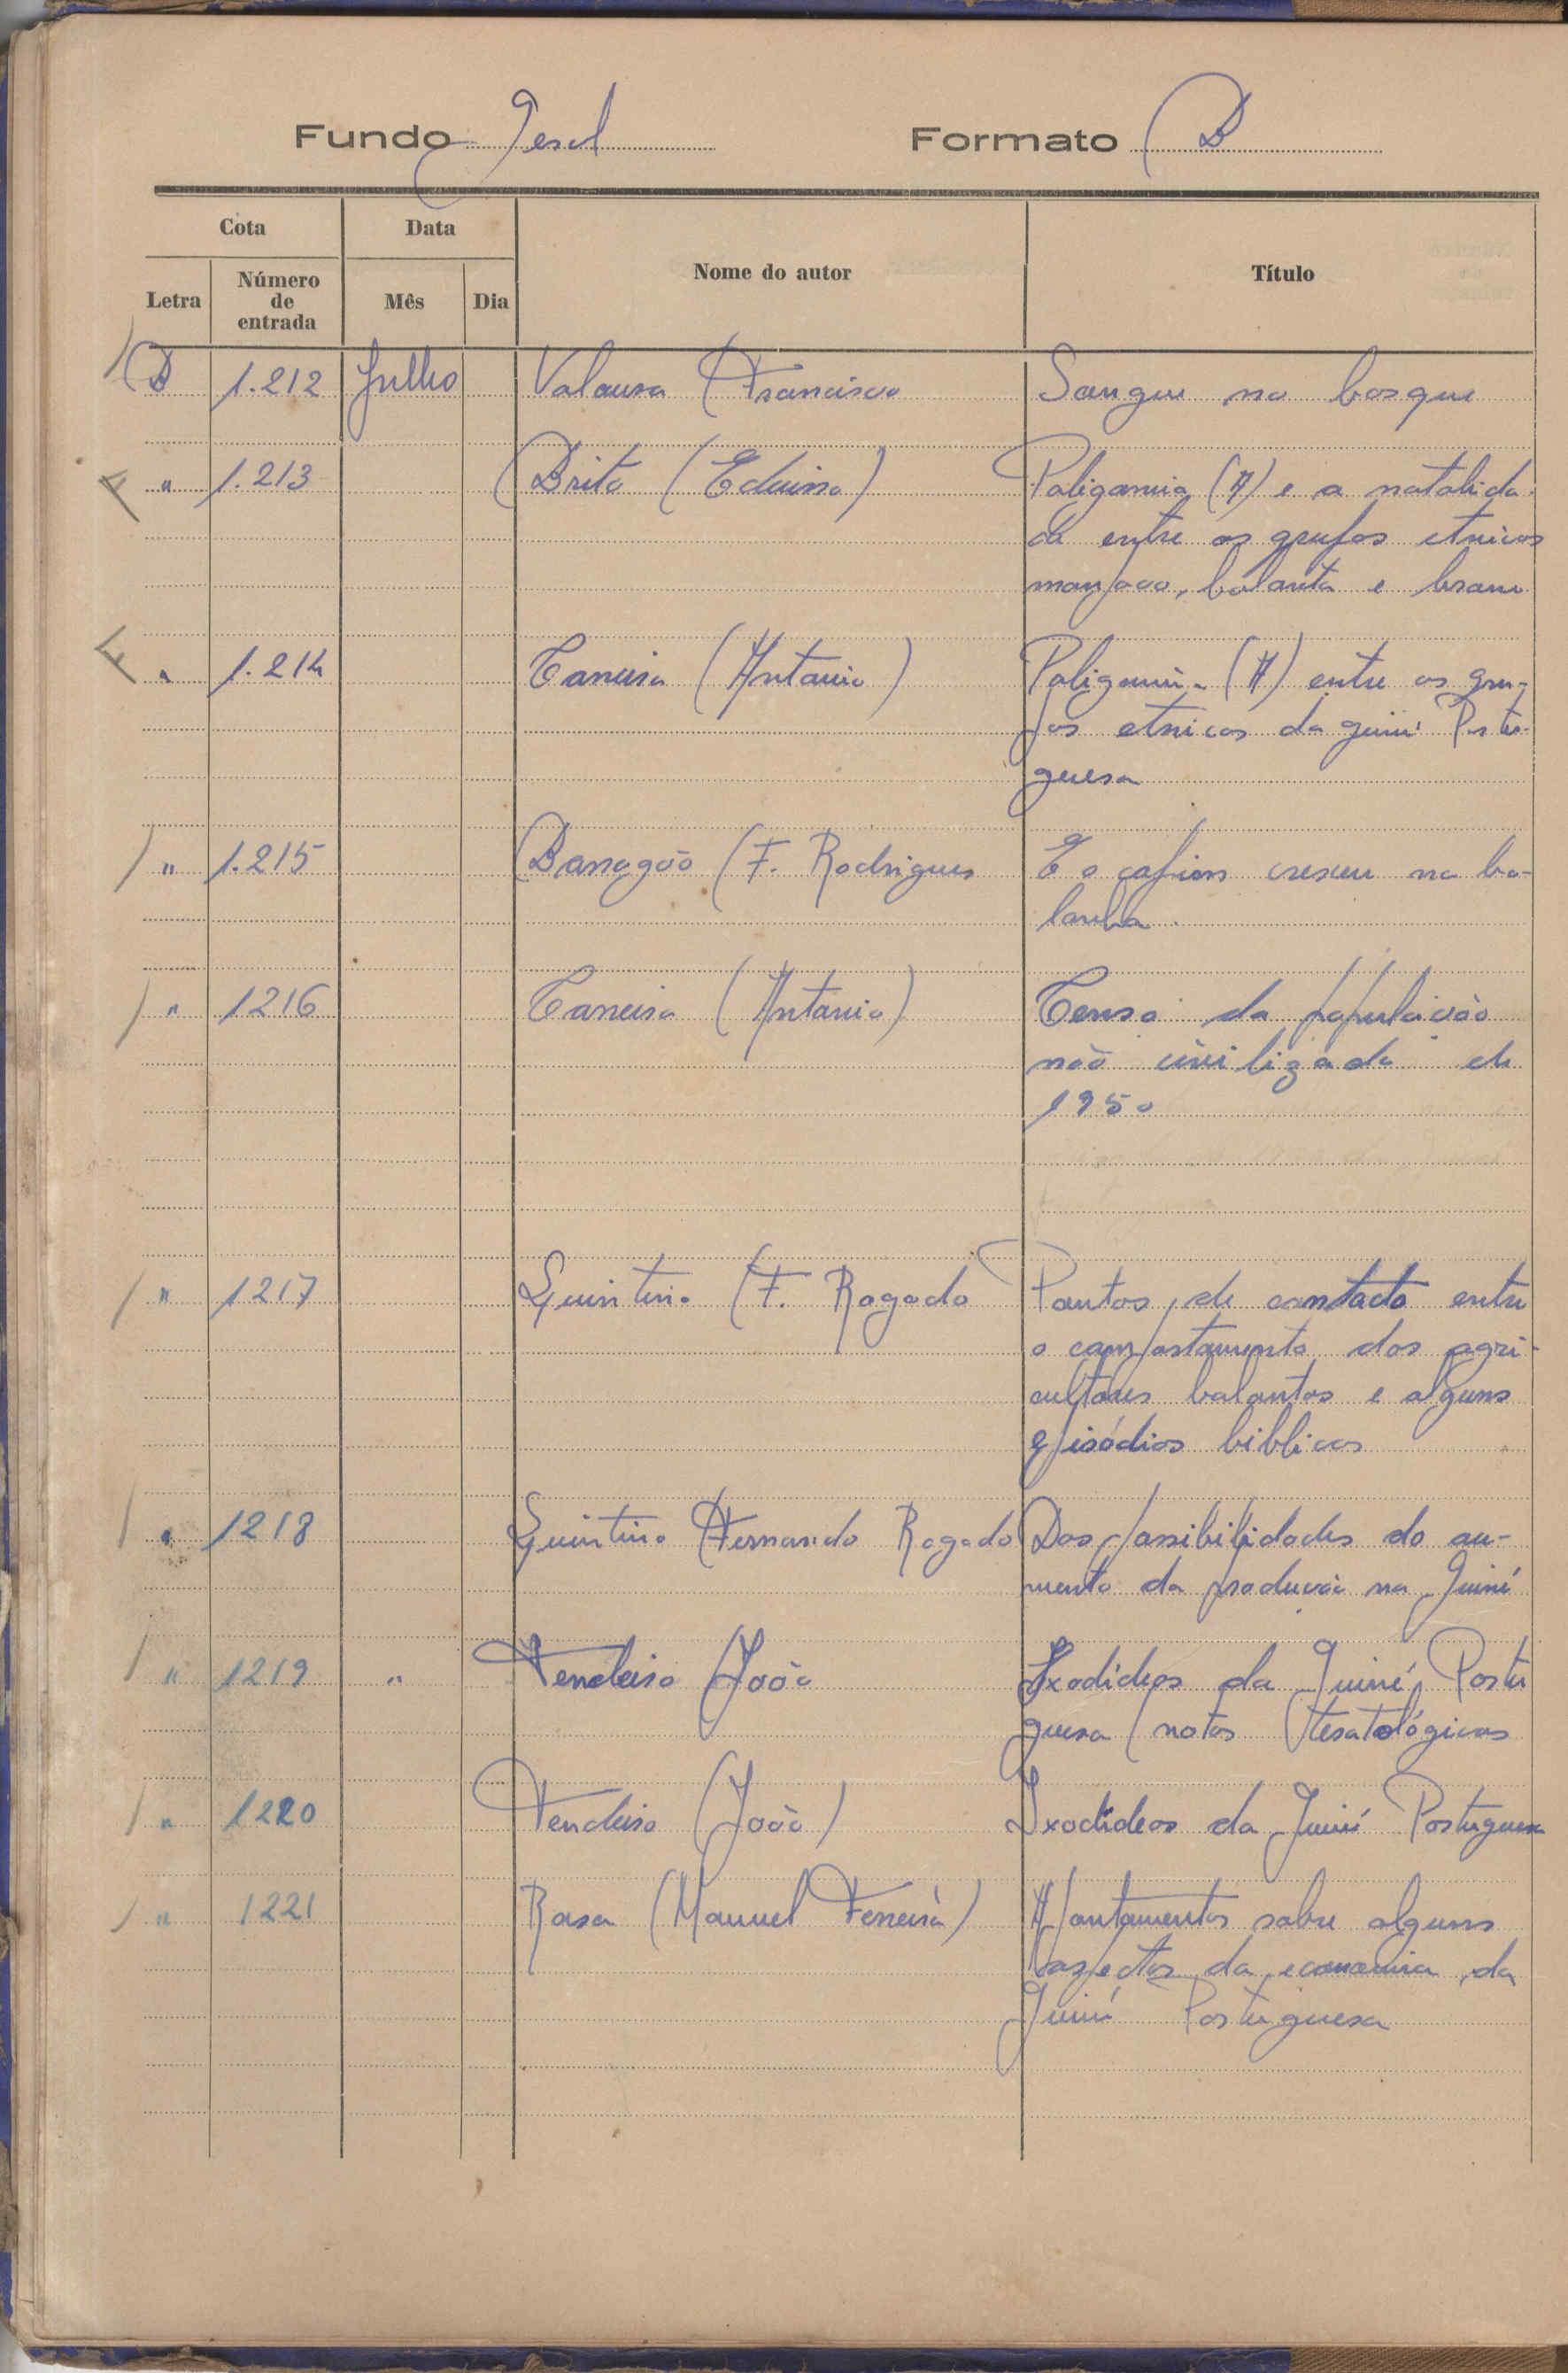 Fundo Geral Formato B
Cota Data Nome do autor Título
Letra Número de entrada Mês Dia
B 1.212 Julho Valoura (Francisco Sangue no bosque
F " 1.213 Brito (Eduino) Poligamia (A) e a natalida-
de entre os grupos etnicos
manjaco, balanta e brame
F " 1.214 Carreira (António) Poligamia (A) entre os gru-
pos etnicos da guiné Portu-
guesa
" 1.215 Barragão (F. Rodrigues E o capim cresceu na bo-
lanha.
" 1216 Carreira (António) Censo da população
não civilizada de
1950
" 1217 Quintino (F. Rogado Pontos de contacto entre
o comportamento dos agri-
cultores balantas e alguns
episódios biblicos
" 1218 Quintino (Fernando Rogado Das possibilidades do au-
mento da produção na Guiné
" 1219 " Tendeiro (João Ixodídeos da Guiné Portu
guesa (notas teratológicas
" 1220 Tendeiro (João) Ixodídeos da Guiné Portuguesa
" 1221 Rosa (Manuel Ferreira) Apontamentos sobre alguns
aspectos da economia da
Guiné Portuguesa